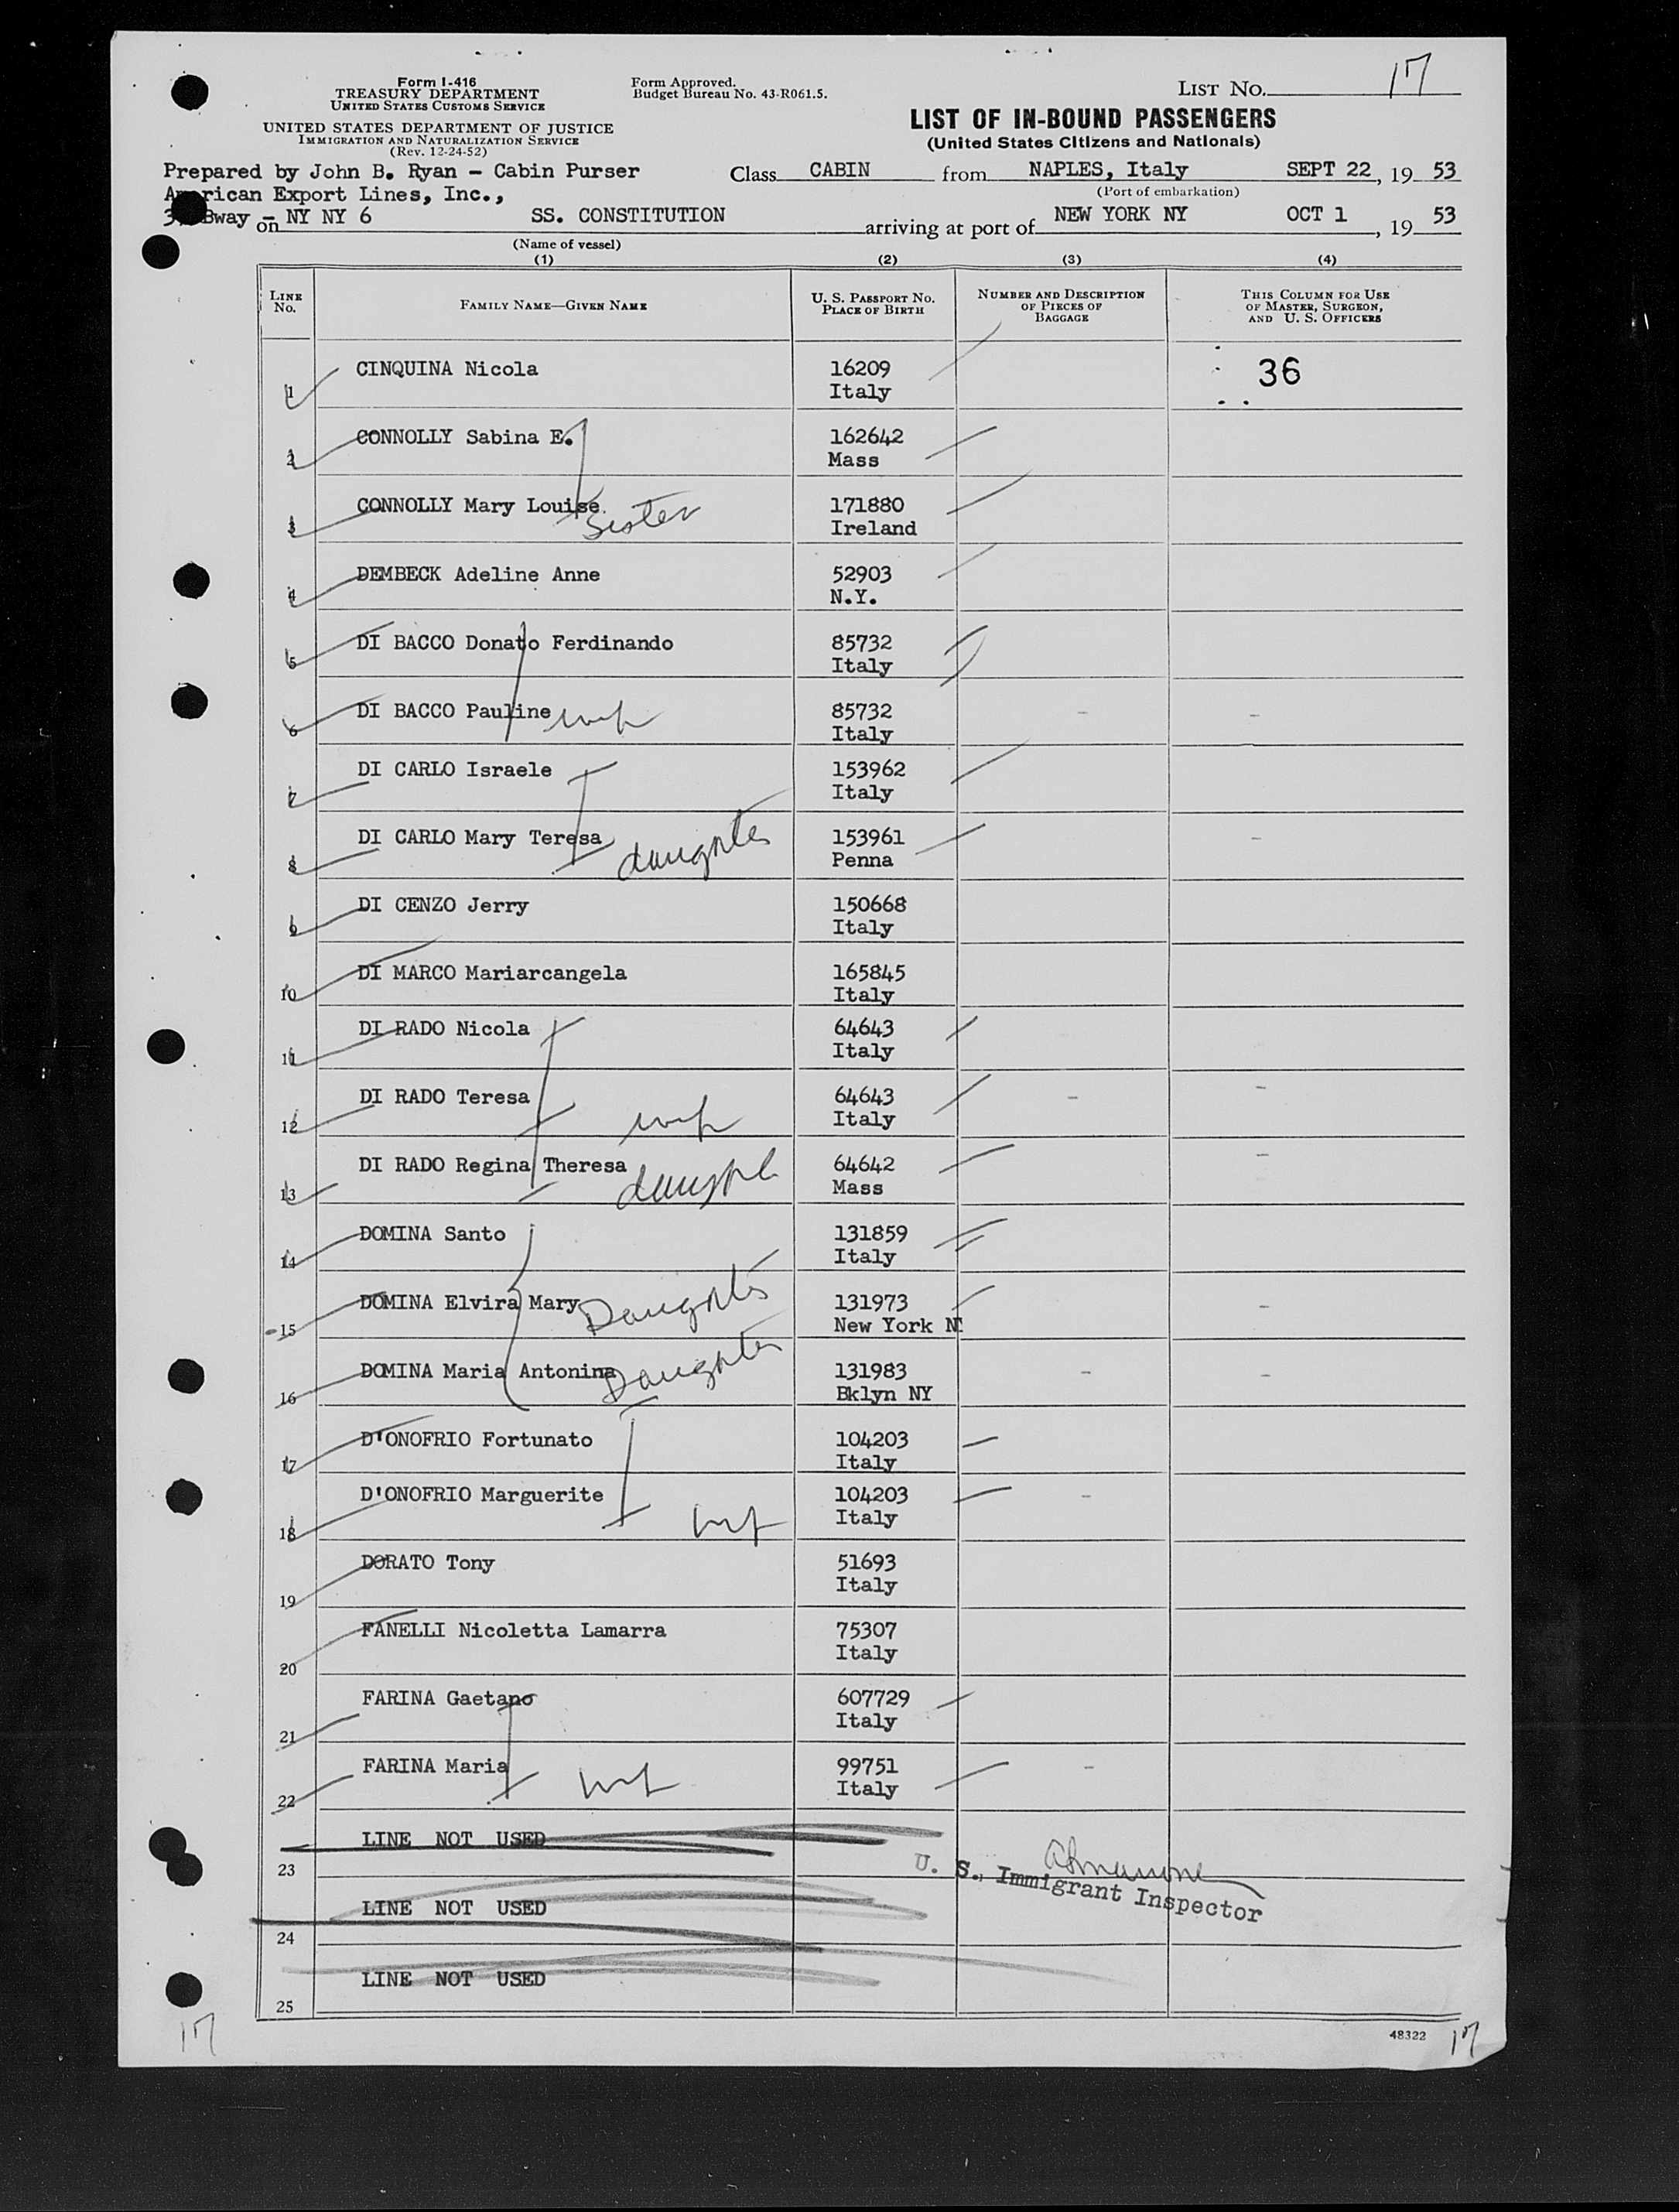 Form I-416
TREASURY DEPARTMENT
UNITED STATES CUSTOMS SERVICE
UNITED STATES DEPARTMENT OF JUSTICE
IMMIGRATION AND NATURALIZATION SERVICE
(Rev. 12-24-52)
Form Approved.
Budget Bureau No. 43-R061.5.
LIST NO. 17
LIST OF IN-BOUND PASSENGERS
(United States Citizens and Nationals)
Prepared by John B. Ryan - Cabin Purser
American Export Lines, Inc.,
Bway - NY NY 6
Class CABIN from NAPLES, Italy SEPT 22, 19 53
(Port of embarkation)
on SS. CONSTITUTION arriving at port of NEW YORK NY OCT 1, 19 53
(Name of vessel)
(1) (2) (3) (4)
LINE NO. FAMILY NAME—GIVEN NAME U. S. PASSPORT NO. PLACE OF BIRTH NUMBER AND DESCRIPTION OF PIECES OF BAGGAGE THIS COLUMN FOR USE OF MASTER, SURGEON, AND U. S. OFFICERS
1 CINQUINA Nicola 16209 36
Italy
2 CONNOLLY Sabina E. 162642
Mass
3 CONNOLLY Mary Louise Sister 171880
Ireland
4 DEMBECK Adeline Anne 52903
N.Y.
5 DI BACCO Donato Ferdinando 85732
Italy
6 DI BACCO Pauline wife 85732 - -
Italy
7 DI CARLO Israele 153962
Italy
8 DI CARLO Mary Teresa daughter 153961 -
Penna
9 DI CENZO Jerry 150668
Italy
10 DI MARCO Mariarcangela 165845
Italy
11 DI RADO Nicola 64643
Italy
12 DI RADO Teresa wife 64643 - -
Italy
13 DI RADO Regina Theresa daughter 64642 -
Mass
14 DOMINA Santo 131859
Italy
15 DOMINA Elvira Mary Daughter 131973 -
New York N
16 DOMINA Maria Antonina Daughter 131983 - -
Bklyn NY
17 D'ONOFRIO Fortunato 104203
Italy
18 D'ONOFRIO Marguerite wife 104203 -
Italy
19 DORATO Tony 51693
Italy
20 FANELLI Nicoletta Lamarra 75307
Italy
21 FARINA Gaetano 607729
Italy
22 FARINA Maria wife 99751 -
Italy
23 LINE NOT USED
U. S. Immigrant Inspector
24 LINE NOT USED
25 LINE NOT USED
48322
17 17